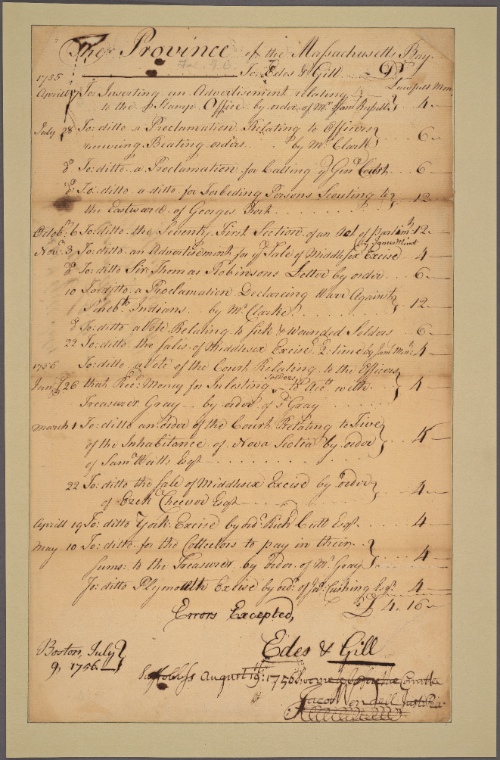 The Province of the Massachusetts Bay
To: Edes & Gill Dr
1755 Lawfull Mon
Aprill To: Inserting an Advertisement relating
to the Stamp Office by order of Mr 4
July 28 To: ditto a Proclamation Relating to Officers
Beating orders by Mr Clark 6
do To: ditto a Proclamation for Calling ye Genl Court 6
do To: ditto a ditto for forbiding Persons Scouting to
the Eastward of Georges 12
6 To: ditto the Seventy first Section of an Act of 12
Novr 3 To: ditto an Advertisement for ye Sale of Middlesex Excise 4
do To: ditto Sir Thomas Robinsons Letter by order 6
10 To: ditto a Proclamation Declareing Warr Against
Indians by Mr Clarke 12
do To: ditto a Vote Relating to Sick & Wounded Soldiers 6
22 To: ditto the Sale of Middlesex Excise 2 time by 4
1756 To: ditto a Vote of the Court Relating to the Officers
Janry 26 that Recd Money for with
Treasurer Gray by order of Gray 4
March 1 To: ditto an order of the Court Relating to
of the Inhabitance of Nova Scotia by order
of Saml Watts Esqr
22 To: ditto the Sale of Middlesex Excise by order
of Ezek Cheever Esqr 4
Aprill 19 To: ditto York Excise by ord. Rich Cutt Esqr 4
May 10 To: ditto for the Collectors to pay in their
Sums to the Treasurer by order of Mr Gray 4
To: ditto Plymouth Excise by ord. of Cushing Esqr 4
£ 4. 16
Errors Excepted,
Boston, July
9, 1756
Edes & Gill
Suffolk ss August 19: 1756
Jacob Wendell